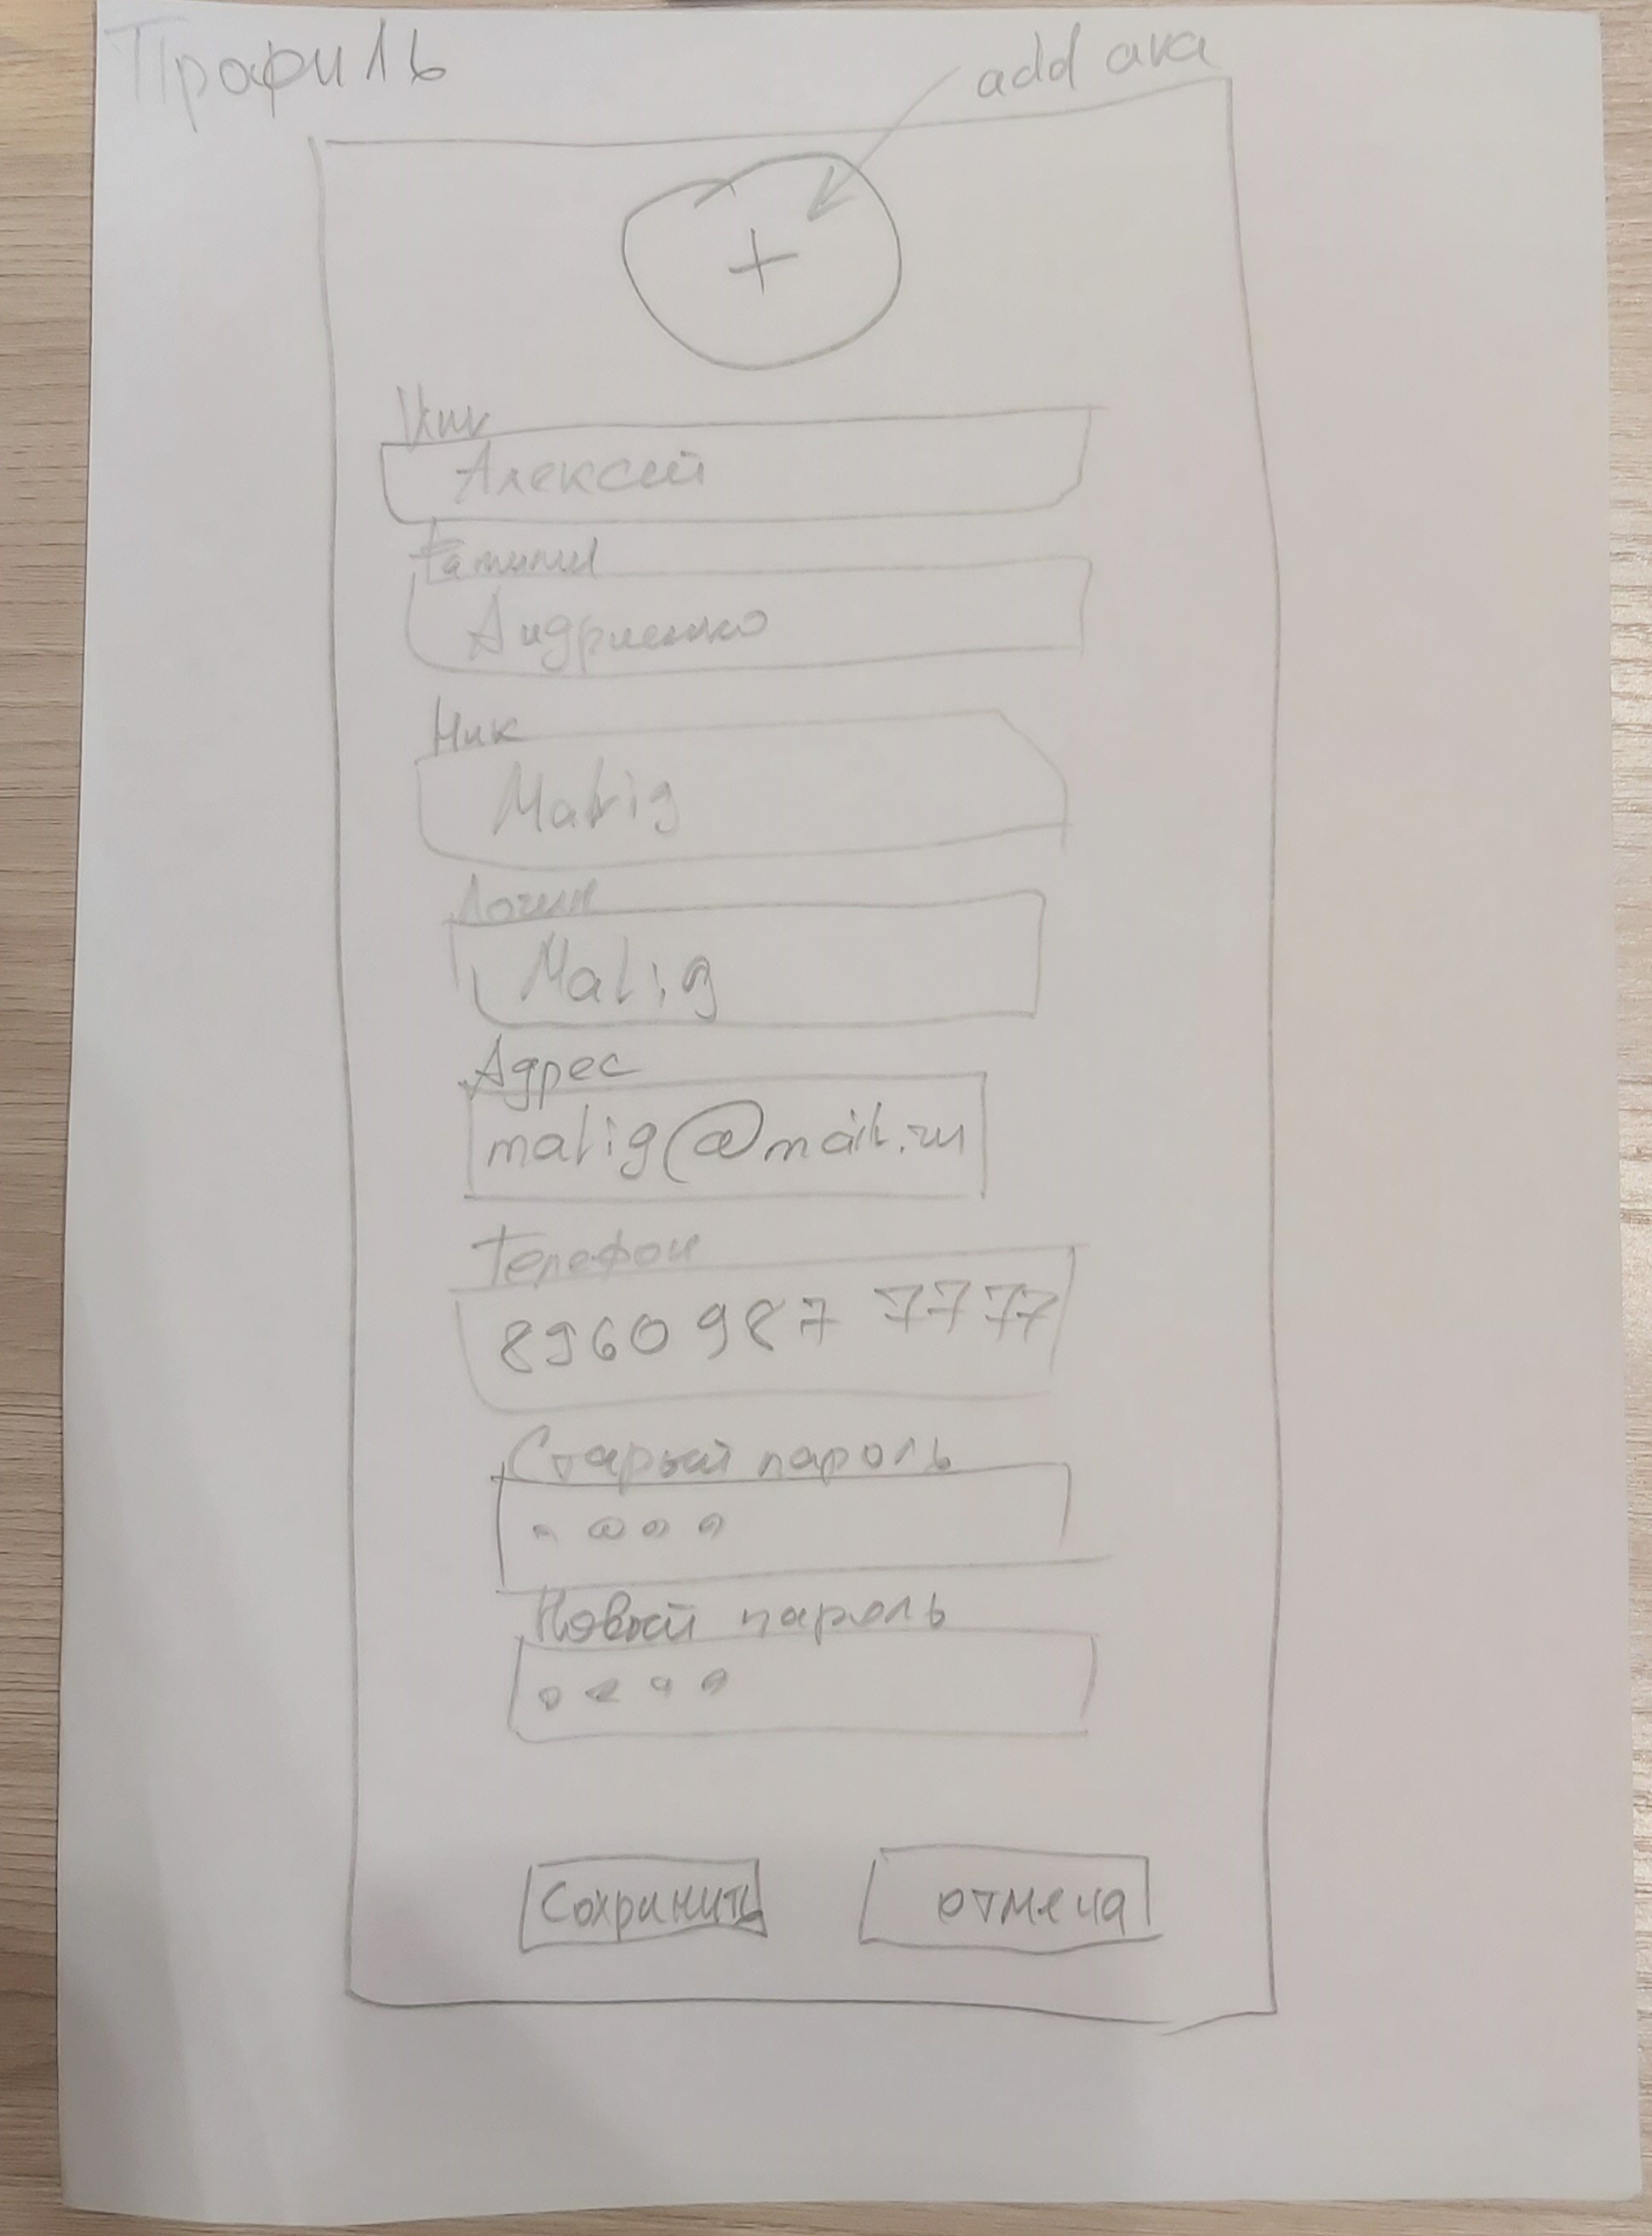 Профиль
add ava
Имя
Алексей
Фамилия
Андриенко
Ник
Malig
Логин
Malig
Адрес
malig@mail.ru
Телефон
8960 987 7777
Старый пароль
Новый пароль
Сохранить
отмена